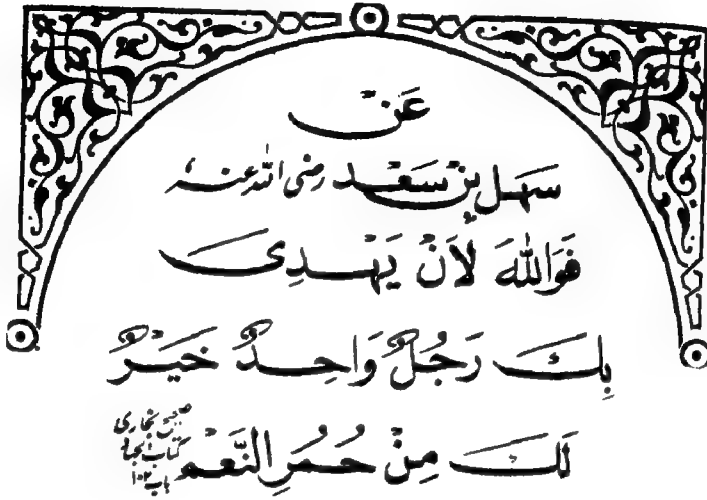 عَنْ
سَهَلِ بْنِ سَعَدٍ رضى الله عنہ
فَوَاللهَ لَأَنْ يَهْدِى
بِكَ رَجُلٌ وَاحِدٌ خَيْرٌ
لَكَ مِنْ حُمُرِ النَّعَمْ
صحیح بخاری
کتاب الجہاد
باب ۱۰۲